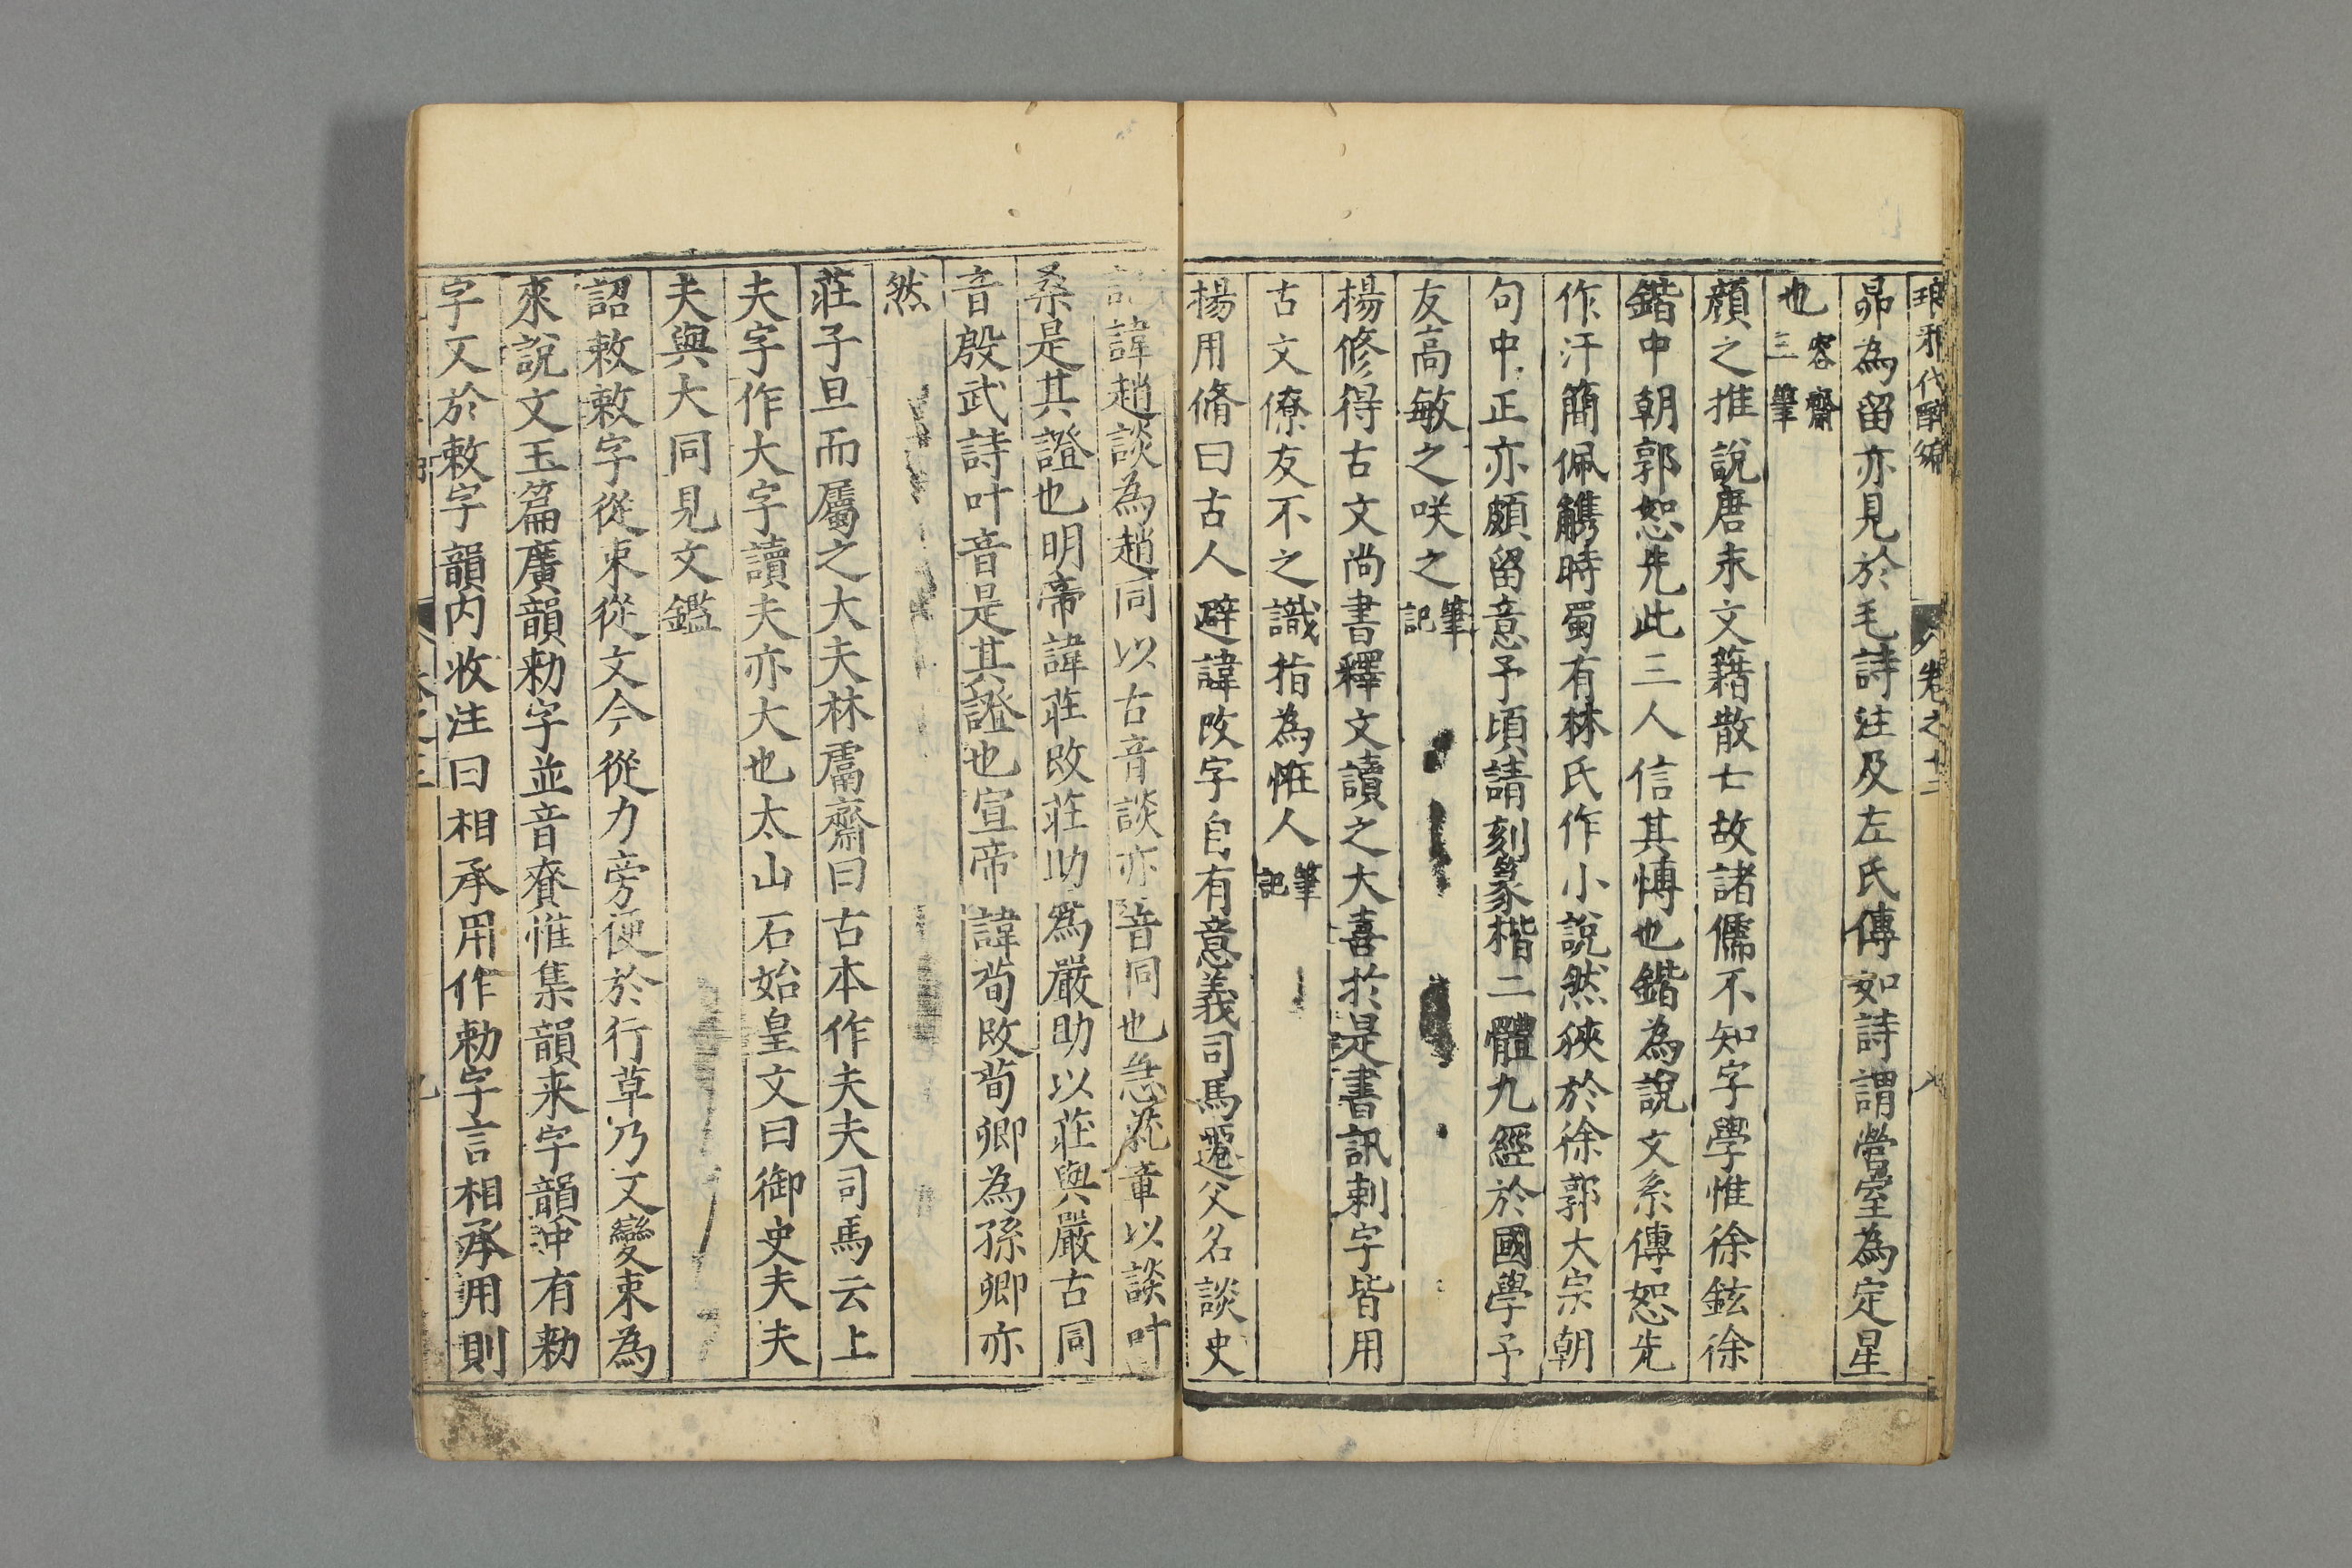 琅邪代醉編 卷之十二 八
昴為留亦見於毛詩注及左氏傳如詩謂營室為定星
也 容齋三筆
顏之推說唐末文籍散亡故諸儒不知字學惟徐鉉徐
鍇中朝郭恕先此三人信其愽也鍇為說文系傳恕先
作汗簡佩觿時蜀有林氏作小說然狹於徐郭大宗朝
句中正亦頗留意予頃請刻篆楷二體九經於國學予
友高敏之咲之 筆記
楊修得古文尚書釋文讀之大喜於是書訊刺字皆用
古文僚友不之識指為恠人 筆記
揚用脩曰古人避諱改字自有意義司馬遷父名談史
記諱趙談為趙同以古音談亦音同也急就章以談叶
桑是其證也明帝諱莊改莊助為嚴助以莊與嚴古同
音殷武詩叶音是其證也宣帝諱荀改荀卿為孫卿亦
然
莊子旦而屬之大夫林鬳齋曰古本作夫夫司馬云上
夫字作大字讀夫亦大也太山石始皇文曰御史夫夫
夫與大同見文鑑
詔敕敕字從束從文今從力旁便於行草乃又變束為
來說文玉篇廣韻勑字並音賚惟集韻来字韻冲有勑
字又於敕字韻内收注曰相承用作勑字言相承用則